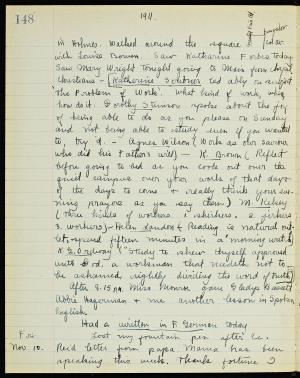 148
1911.
in Holmes. Walked around the square
with Louise Bowman. Saw Katharine Forbes today.
Saw Mary Wright tonight going to Mass from chapel,
Christians - Katherine led ably on subject
'The Problem of Work'. What kind of work, why,
how do it. Dorothy Stimson spoke about the joy
of being able to do as you please on Sunday
and not being able to study even if you wanted
to, try it. - Agnes Wilson (Work as our saviour
who did his Father's will) - K. Brown (Reflect
before going to bed as you look out over the
quiet campus over your works of that day
of the days to come & really think your
prayers as you say them) M. Kelsey
(Three kinds of workers. 1 shirkers. 2 jerkers
3. workers) - Helen Landon (Reading is natural
let, spend fifteen minutes in a morning watch)
K. G. Ordway (Study to shew thyself approved
unto God, a workman that needeth not to
be ashamed, rightly dividing the word of truth)
After 8.15 P.M. Miss Monroe gave Gladys Bassett
Abbie Hagerman & me another lesson in Spoken
English.
Had a written in F. German today
Fri. Lost my fountain pen after
Nov. 10. Rec'd letter from papa. Mama has been
speaking this week.